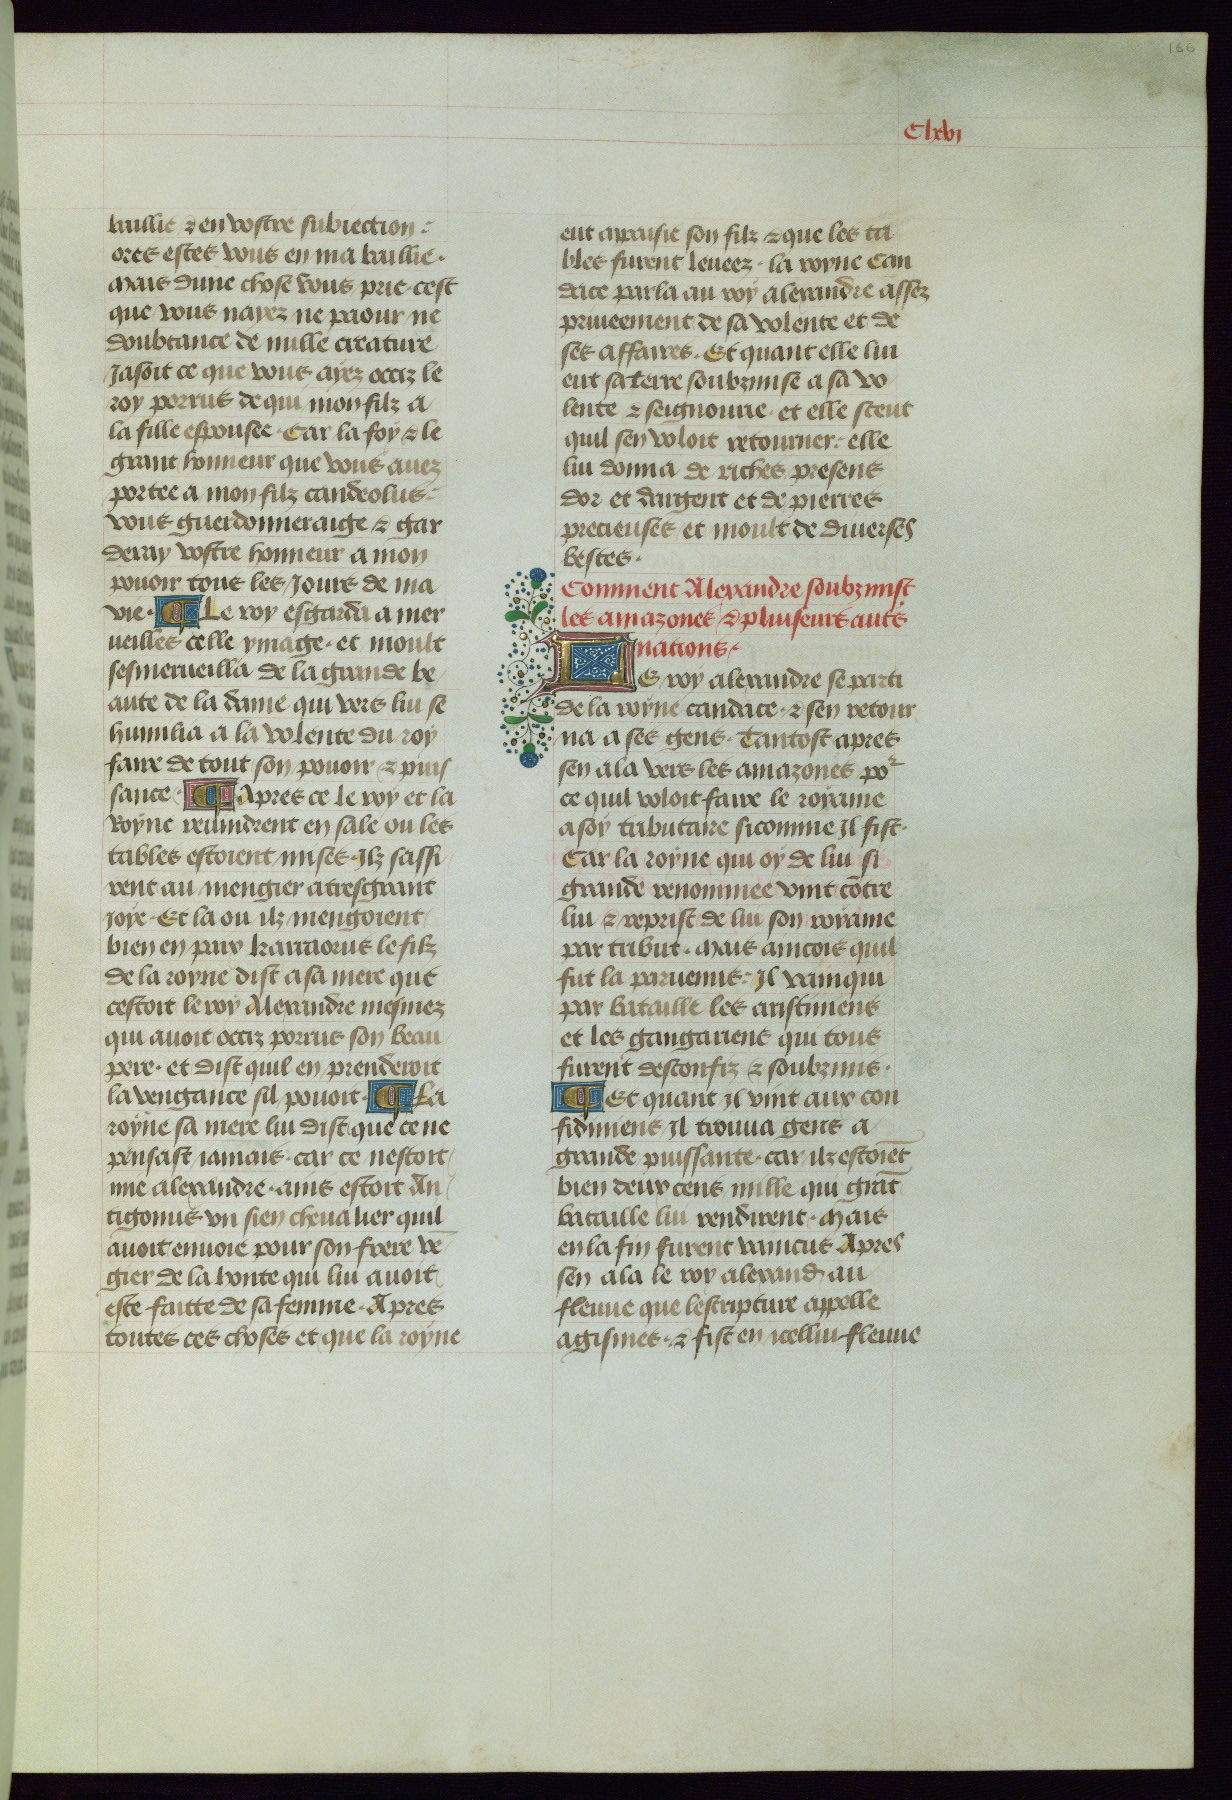 166
Clxvi
baillie ⁊ en vostre subiection
ores estes vous en ma baillie.
Mais dune chose vous prie. cest
que vous nayez ne paour ne
doubtance de nulle creature
Jasoit ce que vous ayez occiz le
roy porrus de qui mon filz a
la fille espousee. Car la foy ⁊ le
grant honneur que vous auez
portee a mon filz candeolus.
vous guerdonneraige ⁊ gar
deray vostre honneur a mon
pouoir tous les Jours de ma
vie. ¶ Le roy esgarda a mer
ueilles celle ymage. et moult
sesmerueilla de la grande be
aute de la dame qui vers lui se
humilia a la volente du roy
faire de tout son pouoir ⁊ puis
sance. ¶ Apres ce le roy et la
Royne reuindrent en sale ou les
tables estoient mises. Ilz sassi
rent au mengier a tresgrant
joye. Et la ou ilz mengoient
bien en paix karraorus le filz
de la royne dist a sa mere que
cestoit le roy Alexandre mesmez
qui auoit occiz porrus son beau
pere. et dist quil en prenderoit
la vengance sil pouoit. ¶ La
royne sa mere lui dist que ce ne
pensast iamais. car ce nestoit
mie alexandre. ains estoit An
tigonus vn sien cheualier quil
auoit enuoie pour son frere vē
gier de la honte qui lui auoit
este faitte de sa femme. Apres
toutes ces choses et que la royne
eut appaisie son filz ⁊ que les ta
bles furent leueez. la royne Can
dace parla au roy alexandre assez
priueement de sa volente et de
ses affaires. Et quant elle lui
eut sa terre soubzmise a sa vo
lente ⁊ seignourie. et elle sceut
quil sen voloit retourner. elle
lui donna de riches presens
dor et dargent et de pierres
precieuses et moult de diuerses
bestes.
Comment Alexandre soubzmist
les amazones ⁊ pluiseurs aut's
nations.
LE roy alexandre se parti
de la royne candace. ⁊ sen retour
na a ses gens. Tantost apres
sen ala vers les amazones poʳ
ce quil voloit faire le royame
a soy tributaire sicomme Jl fist.
Car la royne qui oy de lui si
grande renommee vint cōtre
lui ⁊ reprist de lui son royame
par tribut. Mais aincois quil
fut la paruenus. Jl vainqui
par bataille les aristimens
et les gangariens qui tous
furent desconfiz ⁊ soubzmis.
¶ Et quant Jl vint aux con
fidimens Jl trouua gens a
grande puissante. car ilz estoiēt
bien deux cens mille qui grāt
bataille lui rendirent. Mais
en la fin furent vaincus Apres
sen ala le roy alexand. au
fleuue que lescripture appelle
agismes. ⁊ fist en icellui fleuue